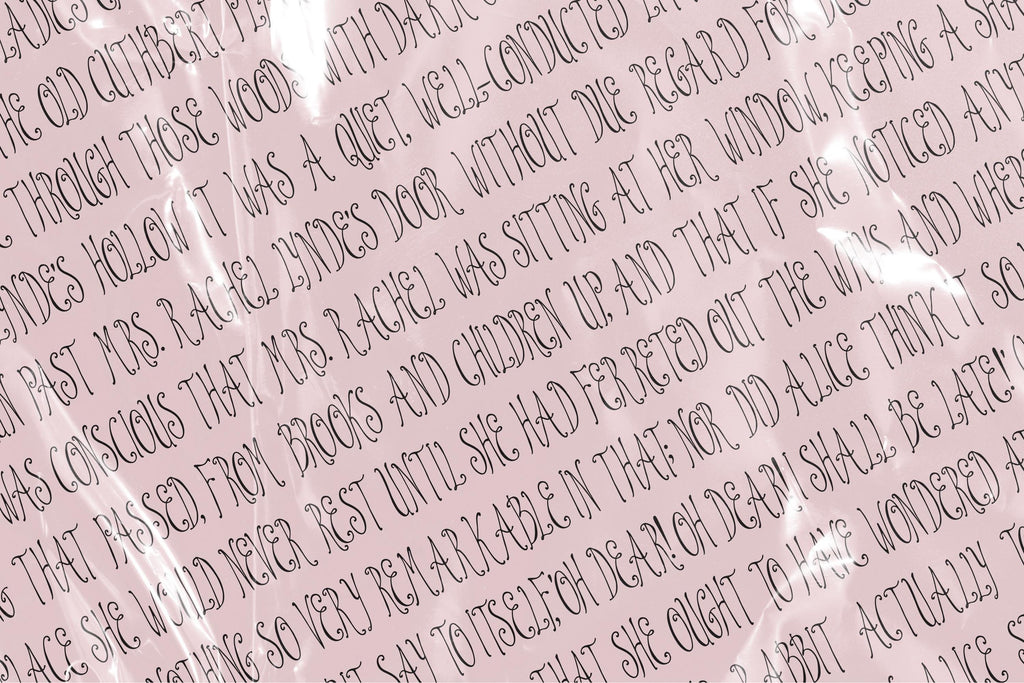 THE OLD CUTHBERT
THROUGH THOSE WOODS WITH DARK
LYNDE'S HOLLOW IT WAS A QUIET, WELL-CONDUCTED
PAST MRS. RACHEL LYNDE'S DOOR WITHOUT DUE REGARD FOR
WAS CONSCIOUS THAT MRS. RACHEL WAS SITTING AT HER WINDOW, KEEPING A
THAT PASSED, FROM BROOKS AND CHILDREN UP, AND THAT IF SHE NOTICED
PLACE SHE WOULD NEVER REST UNTIL SHE HAD FERRETED OUT THE WHYS AND
NOTHING SO VERY REMARKABLE IN THAT; NOR DID ALICE THINK IT SO
SAY TO ITSELF, 'OH DEAR! OH DEAR! I SHALL BE LATE!'
THAT SHE OUGHT TO HAVE WONDERED AT
RABBIT ACTUALLY
ALICE